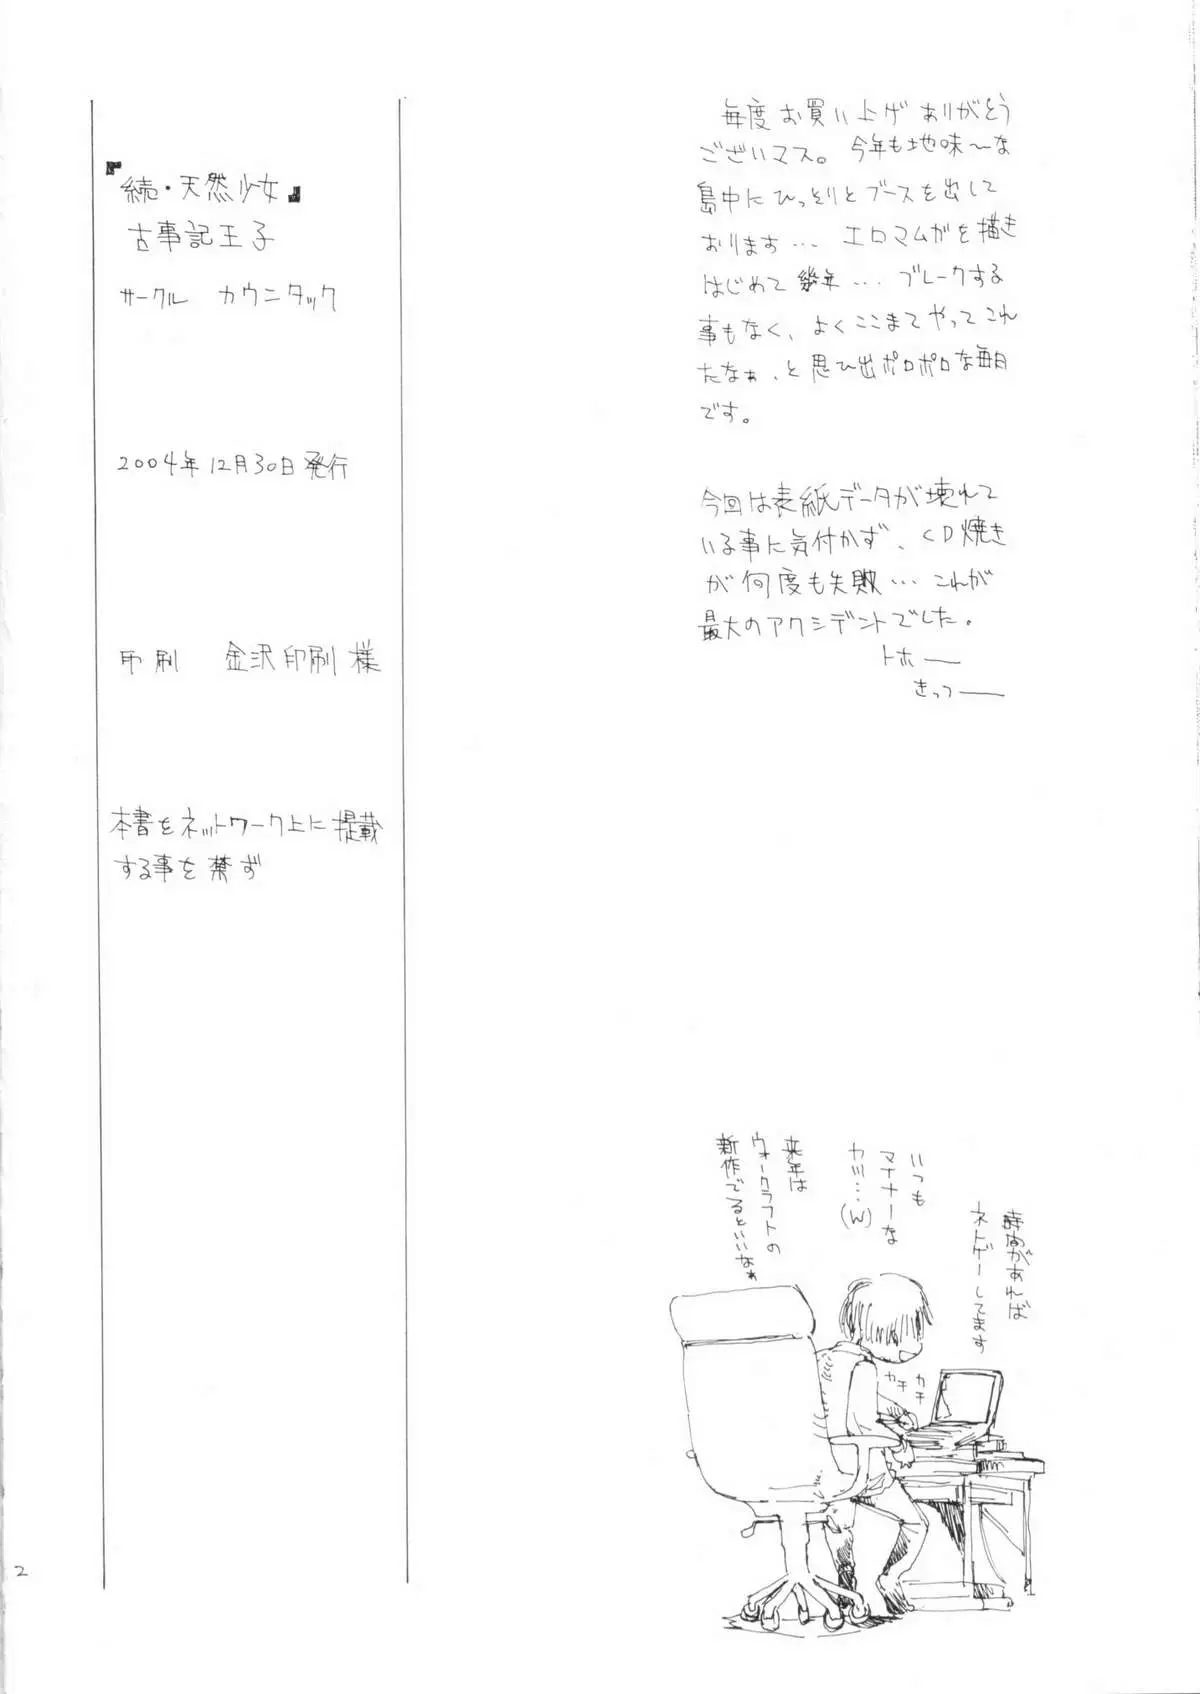 『続・天然少女』
古事記王子
サークル カウニタック
2004年12月30日発行
印刷 金沢印刷様
本書をネットワーク上に掲載
する事を禁ず
毎度お買い上げありがとう
ございマス。今年も地味〜な
島中にひっそりとブースを出して
おります… エロマムガを描き
はじめて幾年… ブレークする
事もなく、よくここまでやってこれ
たなぁ、と思ひ出ポロポロな毎日
です。
今回は表紙データが壊れて
いる事に気付かず、CD焼き
が何度も失敗… これが
最大のアクシデントでした。
トホー
きっつー
時間があれば
ネトゲーしてます
いつも
マイナーな
カ
(W)
来年は
ウォークラフトの
新作でるといいなぁ
カチ
カチ
2